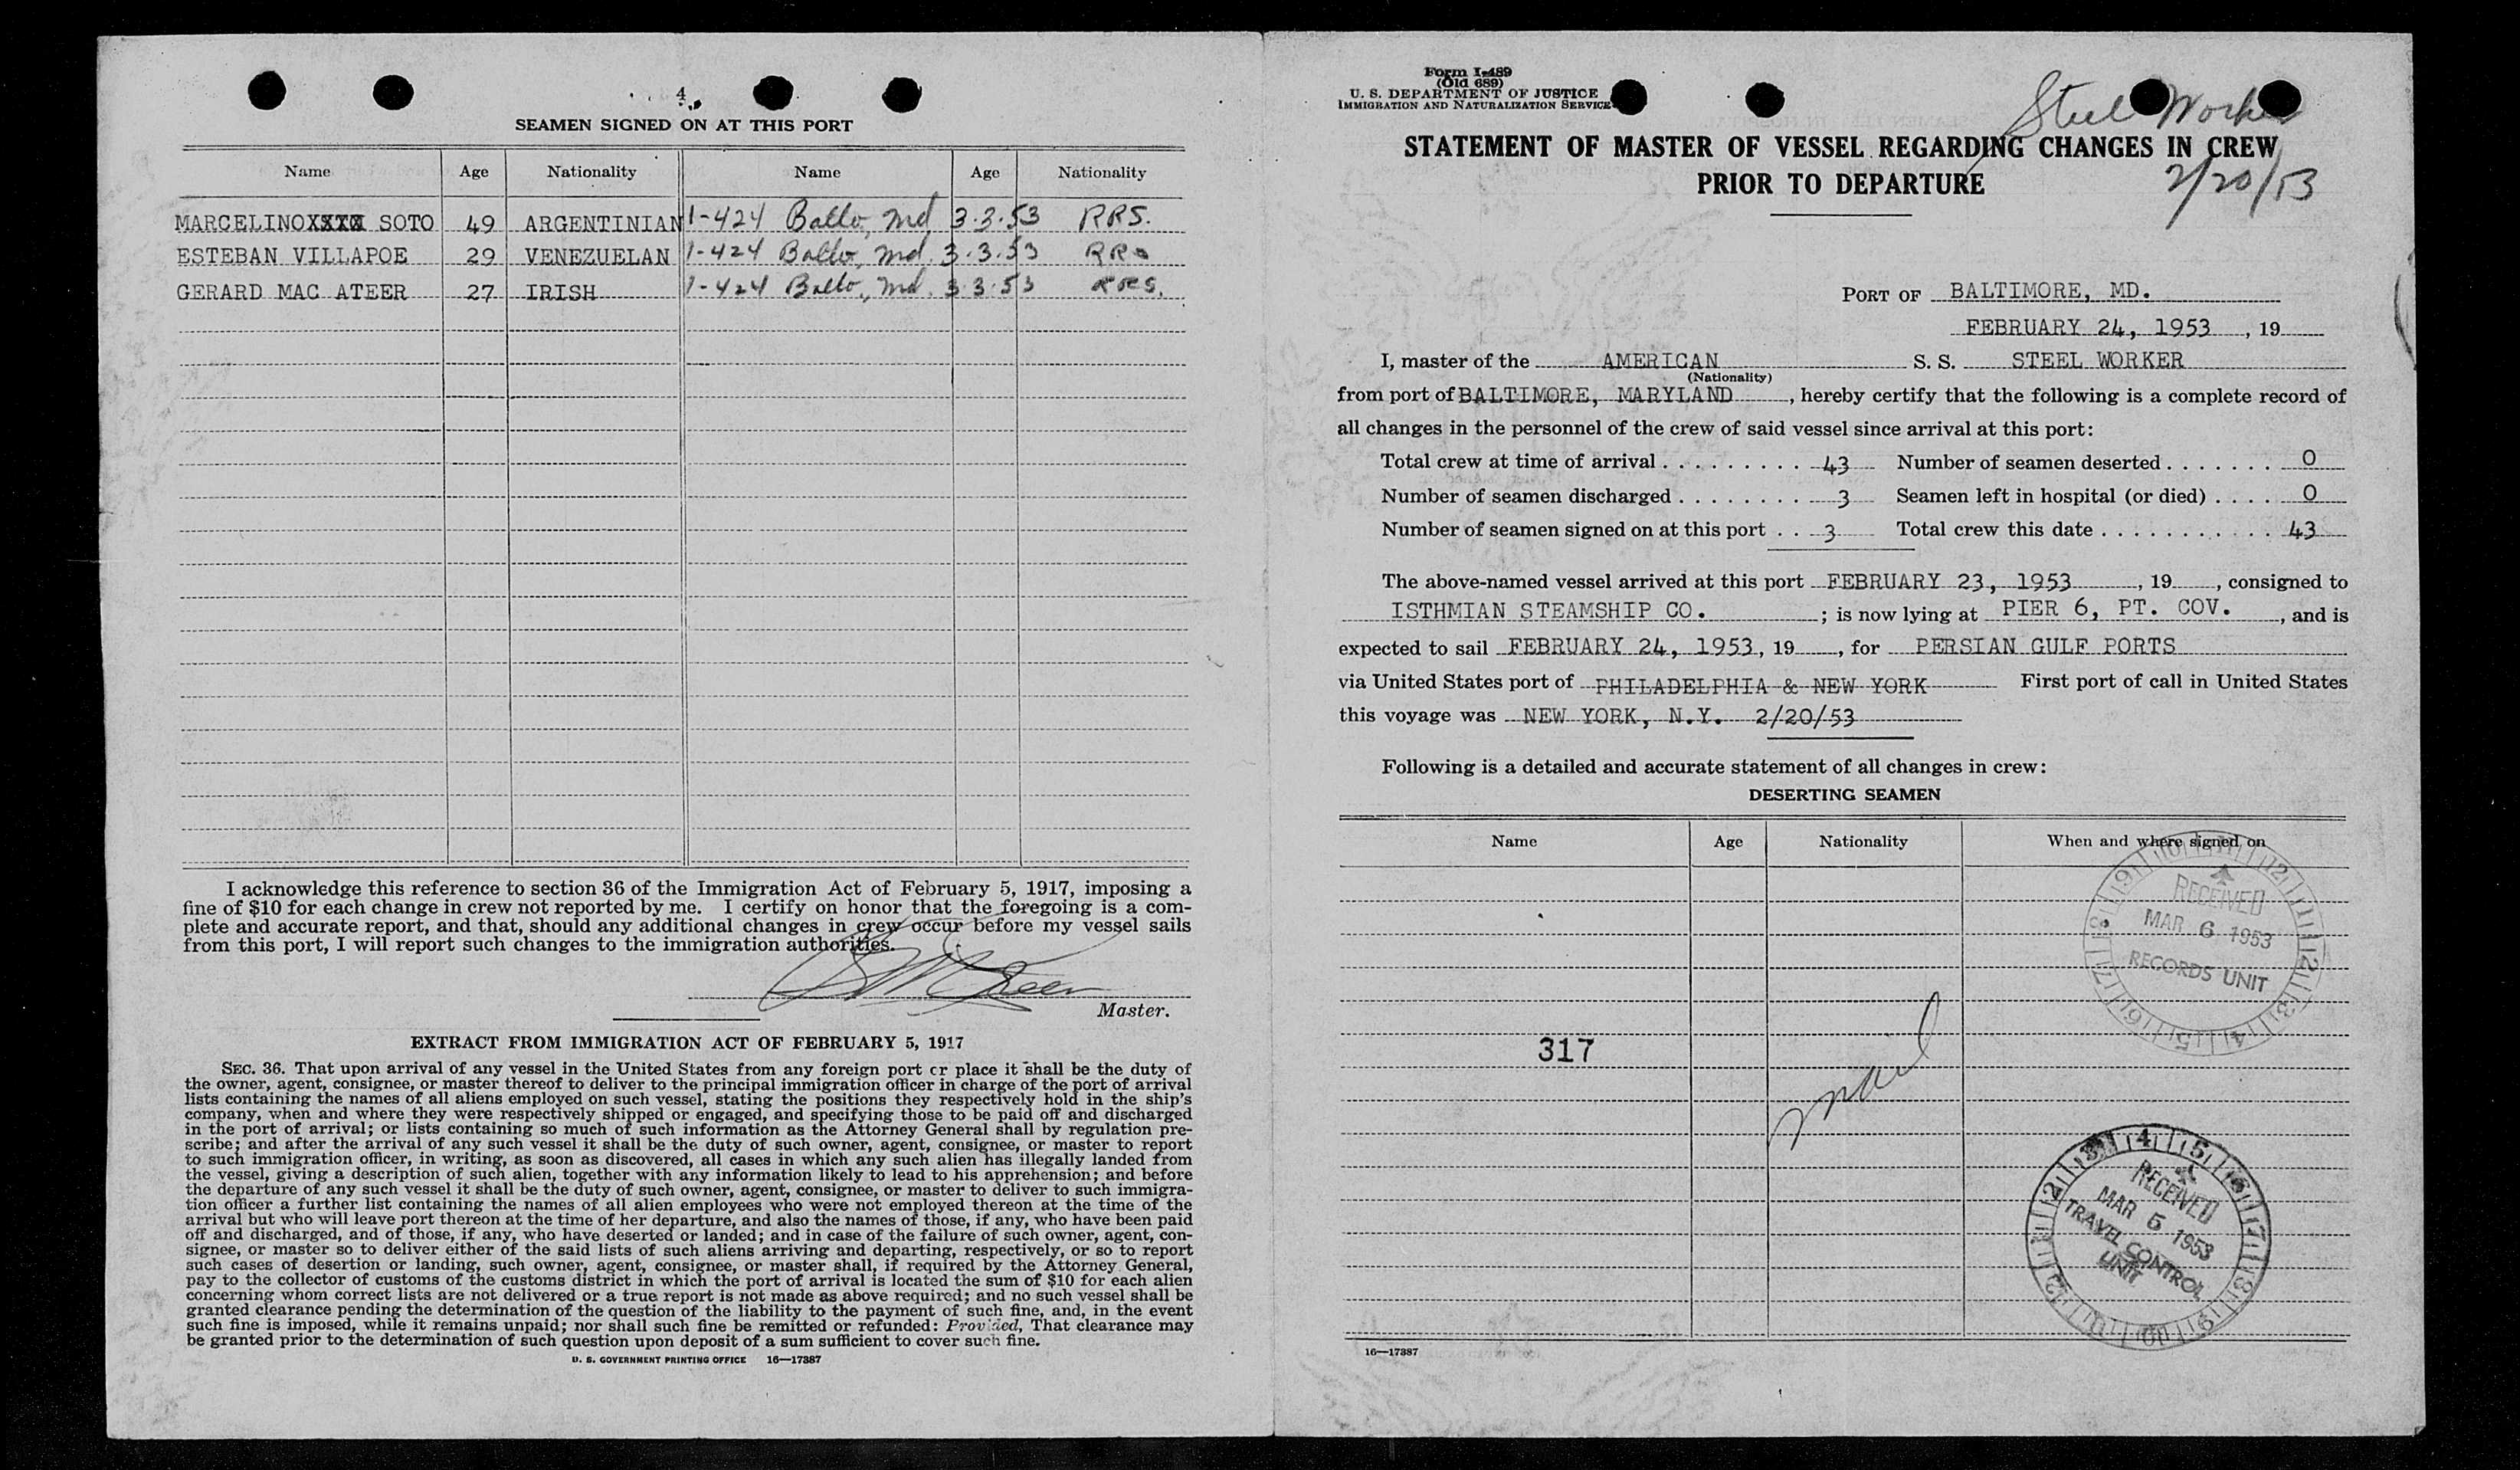 4
SEAMEN SIGNED ON AT THIS PORT
Name Age Nationality Name Age Nationality
MARCELINOXXXX SOTO 49 ARGENTINIAN 1-424 Balto, Md. 3.3.53 RRS.
ESTEBAN VILLAPOE 29 VENEZUELAN 1-424 Balto, Md. 3.3.53 RRS
GERARD MAC ATEER 27 IRISH 1-424 Balto., Md. 3.3.53 RRS.
I acknowledge this reference to section 36 of the Immigration Act of February 5, 1917, imposing a
fine of $10 for each change in crew not reported by me. I certify on honor that the foregoing is a com-
plete and accurate report, and that, should any additional changes in crew occur before my vessel sails
from this port, I will report such changes to the immigration authorities.
Master.
EXTRACT FROM IMMIGRATION ACT OF FEBRUARY 5, 1917
SEC. 36. That upon arrival of any vessel in the United States from any foreign port or place it shall be the duty of
the owner, agent, consignee, or master thereof to deliver to the principal immigration officer in charge of the port of arrival
lists containing the names of all aliens employed on such vessel, stating the positions they respectively hold in the ship's
company, when and where they were respectively shipped or engaged, and specifying those to be paid off and discharged
in the port of arrival; or lists containing so much of such information as the Attorney General shall by regulation pre-
scribe; and after the arrival of any such vessel it shall be the duty of such owner, agent, consignee, or master to report
to such immigration officer, in writing, as soon as discovered, all cases in which any such alien has illegally landed from
the vessel, giving a description of such alien, together with any information likely to lead to his apprehension; and before
the departure of any such vessel it shall be the duty of such owner, agent, consignee, or master to deliver to such immigra-
tion officer a further list containing the names of all alien employees who were not employed thereon at the time of the
arrival but who will leave port thereon at the time of her departure, and also the names of those, if any, who have been paid
off and discharged, and of those, if any, who have deserted or landed; and in case of the failure of such owner, agent, con-
signee, or master so to deliver either of the said lists of such aliens arriving and departing, respectively, or so to report
such cases of desertion or landing, such owner, agent, consignee, or master shall, if required by the Attorney General,
pay to the collector of customs of the customs district in which the port of arrival is located the sum of $10 for each alien
concerning whom correct lists are not delivered or a true report is not made as above required; and no such vessel shall be
granted clearance pending the determination of the question of the liability to the payment of such fine, and, in the event
such fine is imposed, while it remains unpaid; nor shall such fine be remitted or refunded: Provided, That clearance may
be granted prior to the determination of such question upon deposit of a sum sufficient to cover such fine.
U. S. GOVERNMENT PRINTING OFFICE 16—17387
Form I-489
(Old 689)
U. S. DEPARTMENT OF JUSTICE
IMMIGRATION AND NATURALIZATION SERVICE
Steel Worker
STATEMENT OF MASTER OF VESSEL REGARDING CHANGES IN CREW
PRIOR TO DEPARTURE
2/20/53
PORT OF BALTIMORE, MD.
FEBRUARY 24, 1953, 19
I, master of the AMERICAN S. S. STEEL WORKER
(Nationality)
from port of BALTIMORE, MARYLAND, hereby certify that the following is a complete record of
all changes in the personnel of the crew of said vessel since arrival at this port:
Total crew at time of arrival 43 Number of seamen deserted 0
Number of seamen discharged 3 Seamen left in hospital (or died) 0
Number of seamen signed on at this port 3 Total crew this date 43
The above-named vessel arrived at this port FEBRUARY 23, 1953, 19, consigned to
ISTHMIAN STEAMSHIP CO. ; is now lying at PIER 6, PT. COV. , and is
expected to sail FEBRUARY 24, 1953, 19, for PERSIAN GULF PORTS
via United States port of PHILADELPHIA & NEW YORK First port of call in United States
this voyage was NEW YORK, N.Y. 2/20/53
Following is a detailed and accurate statement of all changes in crew:
DESERTING SEAMEN
Name Age Nationality When and where signed on
RECEIVED
MAR 6 1953
RECORDS UNIT
317
mail
RECEIVED
MAR 5 1953
TRAVEL CONTROL
UNIT
16—17387